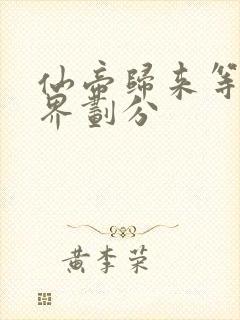 仙帝歸来等
界劃分
黄李荣